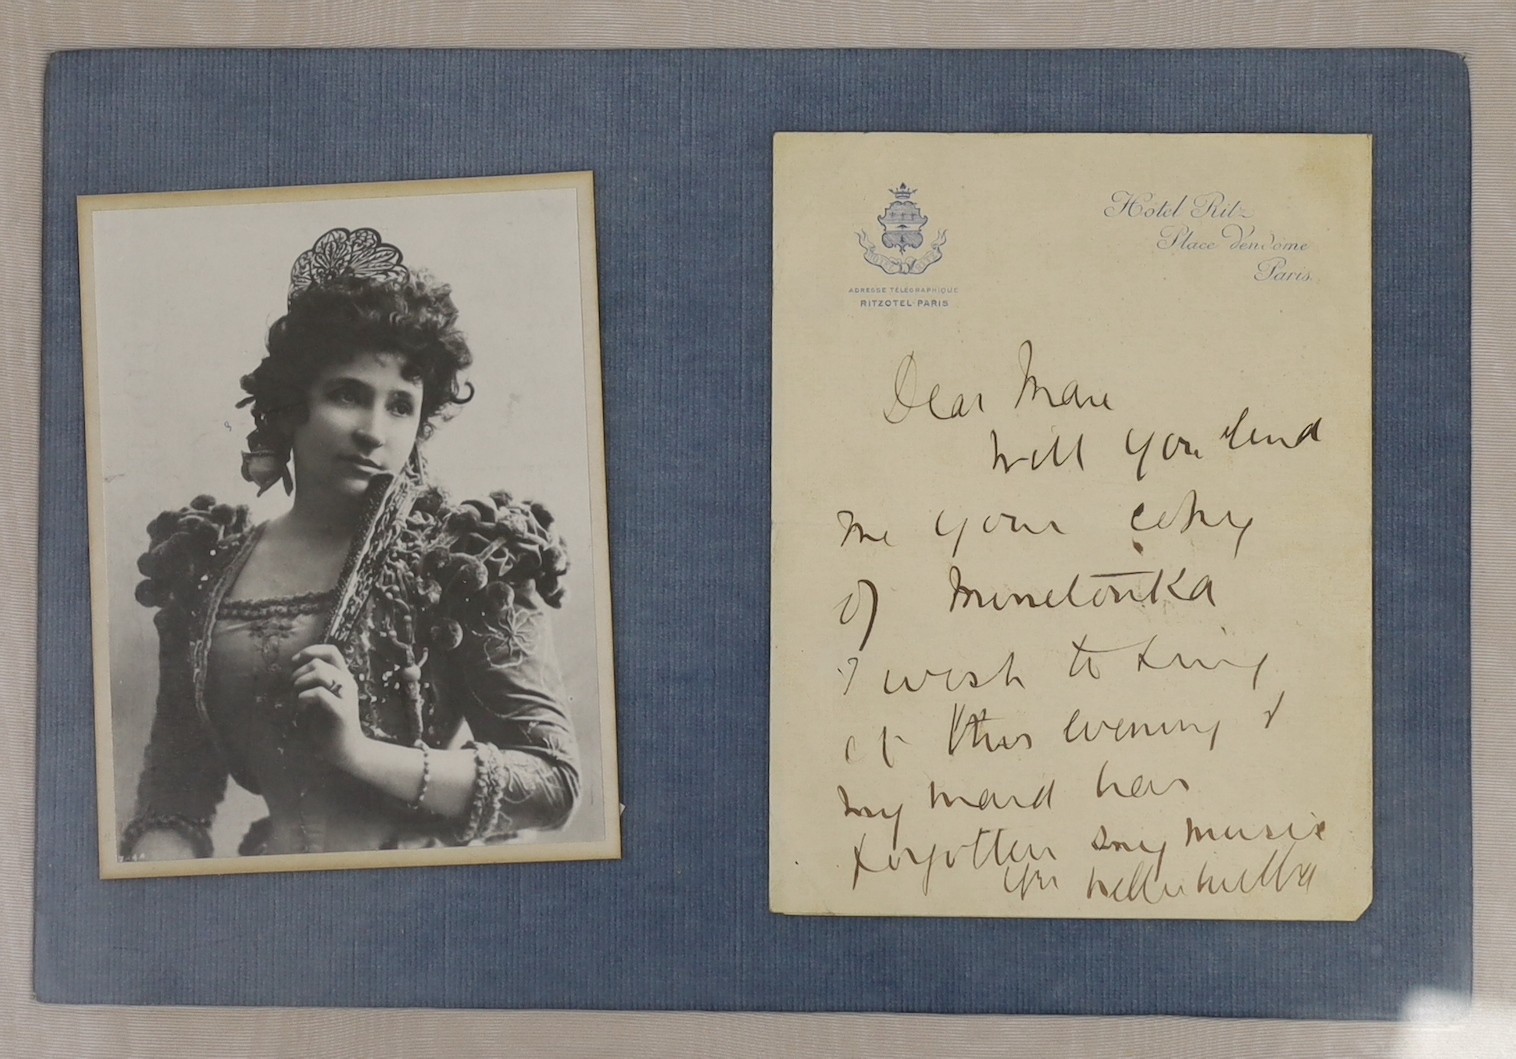 Hotel Ritz
Place Vendôme
Paris.
ADRESSE TÉLÉGRAPHIQUE
RITZOTEL-PARIS
Dear
Will you lend
me your copy
of Minnetonka
I wish to sing
it this evening &
my maid has
forgotten my music
Yrs Nellie Melba